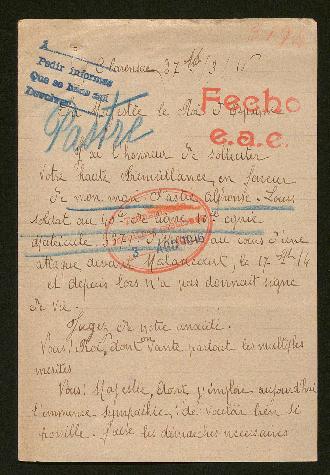 A
Pedir informes
Que se hace aqui
Devolver
Clarensac 27
Fecho
e.a.c.
Pastre
Sa Majestée le Roi d'Espagne
J'ai l'honneur de solliciter
Votre haute bienveillance en faveur
de mon mari Pastre Alphonse Louis
soldat au de ligne cgnie
matricule au cours d'une
attaque devant Malancourt, le 17
et depuis lors n'a pas donnait signe
de vie.
Jugez de notre anxiété.
Vous! Roi, dont on vante partout les multiples
mérites
Vous! Majestée, dont j'implore aujourd'hui
l'immense sympathie; de vouloir bien si
possible. Faire les démarches nécessaires